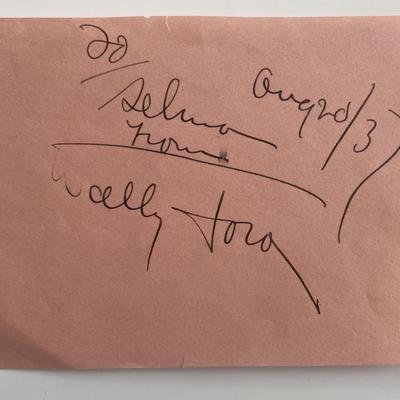 To
Selma
Aug 20/37
from
Wally Ford